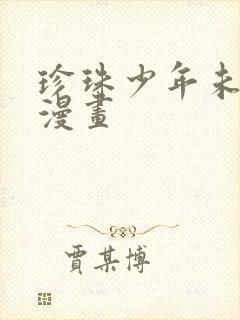 珍珠少年未
漫畫
賈某博